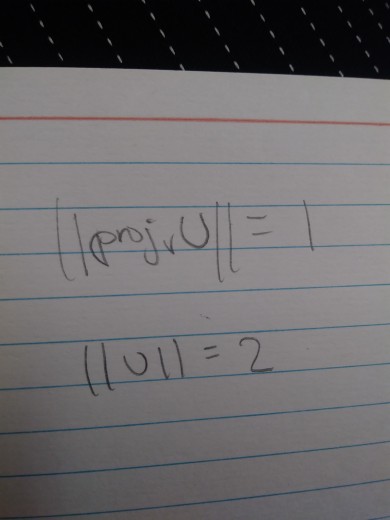 ||projᵥU|| = 1
||U|| = 2